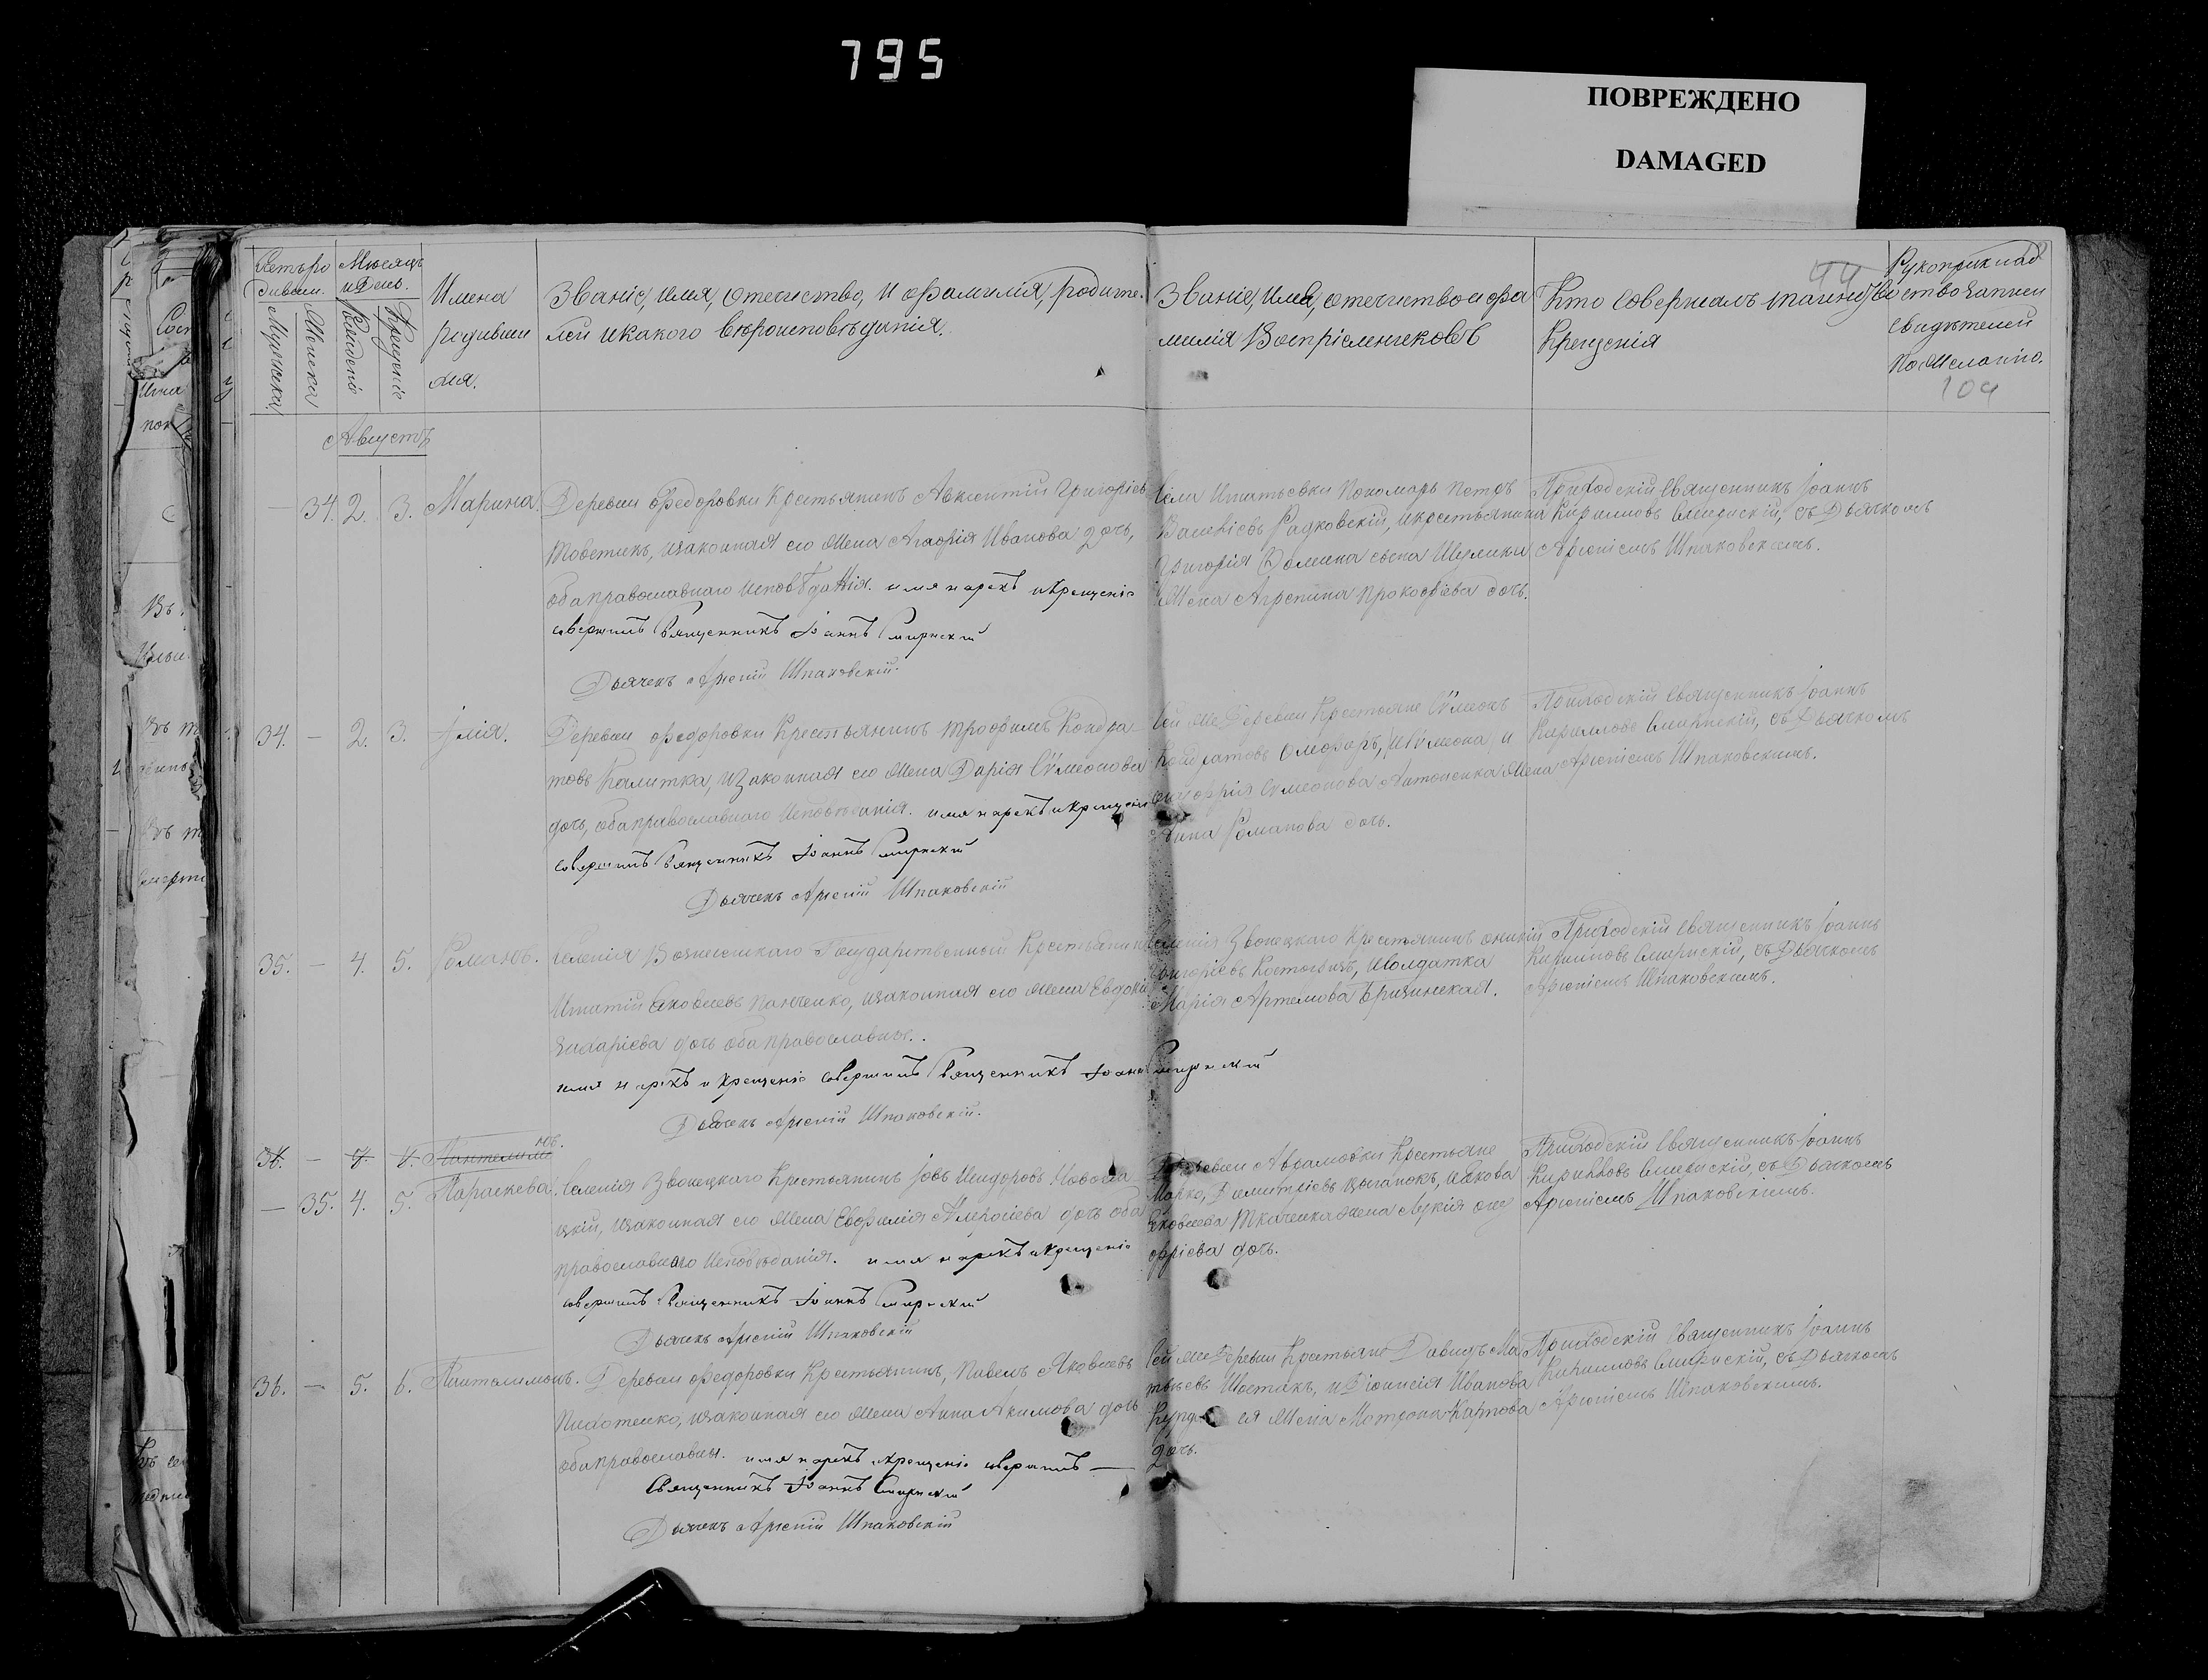 795
ПОВРЕЖДЕНО
DAMAGED
Мѣсяцъ
и День.
Мужеска
Женска
Рожденіе
Крещеніе
Имена
родивши
мся.
Званіе, имя, отечиство, и фамилія, родите-
лей и какого вѣроисповѣданія.
Званіе, имя, отечиство и фа
милія Воспріемниковъ
Кто совершалъ таинство
Крещенія
44
Рукоприклад
ство записи
свидѣтелей
по желанію.
104
Августъ
— 34. 2. 3. Марина.
Деревни Федоровки Крестьянинъ Авксентій Григоріевъ
законная его жена Агафія Иванова дочь,
оба православнаго исповѣданія. имя нарекъ и крещеніе
совершилъ Священникъ Іоаннъ Смирнскій
Дьячекъ Арсеній Шпаковскій.
Села Игнатьевки Пономарь Петръ
Радковскій, и крестьянина
Григорія сына
жена Агрепина Прокофіева дочь.
Приходскій Священникъ Іоаннъ
Кириловъ Смирнскій, съ Дьячкомъ
Арсеніемъ Шпаковскимъ.
34. — 2. 3. Јулія.
Деревни Федоровки Крестьянинъ Трофимъ Кондра-
товъ Калитка, и законная его жена Дарія Сѵмеонова
дочь, оба православнаго Исповѣданія. имя нарекъ и крещеніе
совершилъ Священникъ Іоаннъ Смирнскій
Дьячекъ Арсеній Шпаковскій
Сей же Деревни Крестьяне Сѵмеонъ
Кондратовъ
Сѵмеонова Антоненка жена
Анна Романова дочь.
Приходскій Священникъ Іоаннъ
Кириловъ Смирнскій, съ Дьячкомъ
Арсеніемъ Шпаковскимъ.
35. — 4. 5. Романъ.
Селенія Вознесенскаго Государственный Крестьянинъ
Игнатій Яковлевъ Панченко, и законная его жена Евдокія
Захаріева дочь оба православные.
имя нарекъ и крещеніе совершилъ Священникъ Іоаннъ Смирнскій
Дьячекъ Арсеній Шпаковскій.
Селенія Звонецкаго Крестьянинъ
Григоріевъ и солдатка
Марія Артемова
Приходскій Священникъ Іоаннъ
Кириловъ Смирнскій, съ Дьячкомъ
Арсеніемъ Шпаковскимъ.
36. —
Пантелимонъ.
— 35. 4. 5. Параскева.
Селенія Звонецкаго Крестьянинъ Іовъ Исидоровъ
законная его жена Евфимія Алексіева дочь оба
православнаго Исповѣданія. имя нарекъ и крещеніе
совершилъ Священникъ Іоаннъ Смирнскій
Дьячекъ Арсеній Шпаковскій
Деревни Аврамовки Крестьяне
Марко, Димитріевъ Цыганокъ, и Якова
Яковлева Ткаченка жена Лукія Ону
фріева дочь.
Приходскій Священникъ Іоаннъ
Кириловъ Смирнскій, съ Дьячкомъ
Арсеніемъ Шпаковскимъ.
36. — 5. 6. Пантелимонъ.
Деревни Федоровки Крестьянинъ, Павелъ Яковлевъ
Пихотенко, и законная его жена Анна Акимова дочь
оба православны. имя нарекъ и крещеніе совершилъ —
Священникъ Іоаннъ Смирнскій
Дьячекъ Арсеній Шпаковскій
Сей же Деревни Крестьяне Давидъ Ма
твѣевъ Шостакъ, и Діонисія Иванова
жена Матрона Карпова
дочь.
Приходскій Священникъ Іоаннъ
Кириловъ Смирнскій, съ Дьячкомъ
Арсеніемъ Шпаковскимъ.